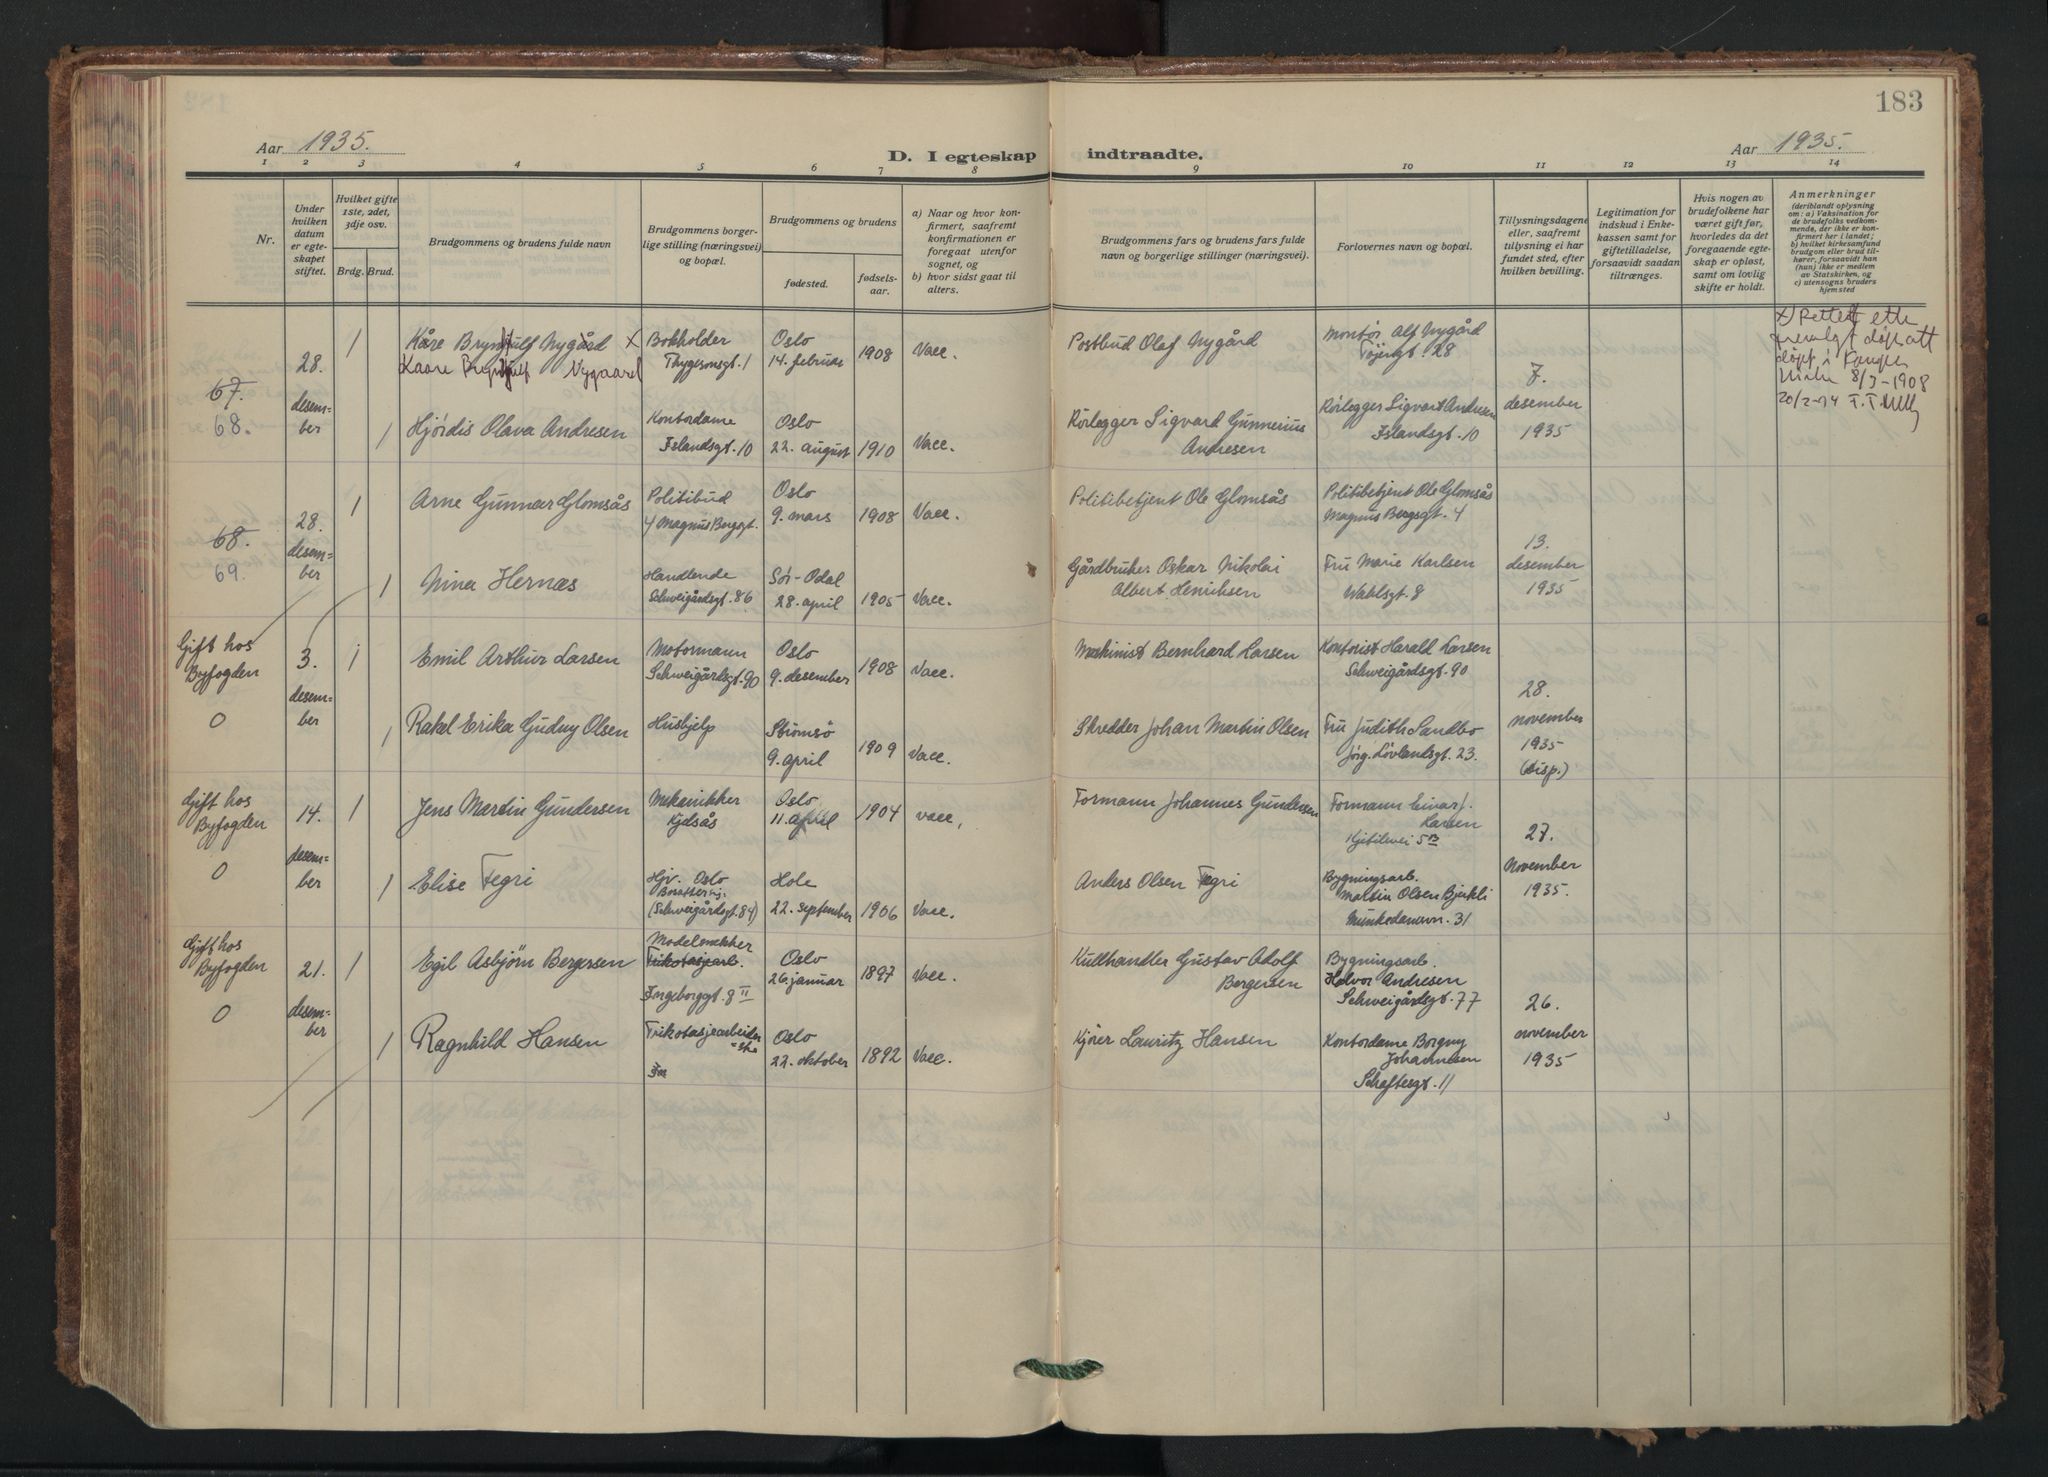 183
Aar 1935.
D. I egteskap indtraadte.
Aar 1935.
1 2 3 4 5 6 7 8 9 10 11 12 13 14
Nr.
Under
hvilken
datum
er egte-
skapet
stiftet.
Hvilket gifte
1ste, 2det,
3dje osv.
Brdg. Brud.
Brudgommens og brudens fulde navn
Brudgommens borger-
lige stilling (næringsvei)
og bopæl.
Brudgommens og brudens
fødested.
fødsels-
aar.
a) Naar og hvor kon-
firmert, saafremt
konfirmationen er
foregaat utenfor
sognet, og
b) hvor sidst gaat til
alters.
Brudgommens fars og brudens fars fulde
navn og borgerlige stillinger (næringsvei).
Forlovernes navn og bopæl.
Tillysningsdagene
eller, saafremt
tillysning ei har
fundet sted, efter
hvilken bevilling.
Legitimation for
indskud i Enke-
kassen samt for
giftetilladelse,
forsaavidt saadan
tiltrænges.
Hvis nogen av
brudefolkene har
været gift før,
hvorledes da det
foregaaende egte-
skap er opløst,
samt om lovlig
skifte er holdt.
Anmerkninger
(deriblandt oplysning
om: a) Vaksination for
de brudefolks vedkom-
mende, der ikke er kon-
firmert her i landet;
b) hvilket kirkesamfund
brudgom eller brud til-
hører, forsaavidt han
(hun) ikke er medlem
av Statskirken, og
c) utensogns bruders
hjemsted
67.
68.
28.
desem-
ber
1
Kåre Brynjulf Nygård x
Kaare Nygaard
Bokholder
Thygesonsgt. 1
Oslo
14. februar
1908
Vacc.
Postbud Olaf Nygård
Montør Alf Nygård
Tøjengt. 28
7.
desember
1935
x) Rettet
døpt i
8/3-1908
20/2-74
1
Hjørdis Olava Andresen
Kontordame
Islandsgt. 10
Oslo
22. august
1910
Vacc.
Rørlegger Sigvard Gunnerius
Andresen
Rørlegger Sigvart Andresen
Islandsgt. 10
68.
69.
28.
desem-
ber
1
Arne Gunnar Glomsås
Politibud
4 Magnus Bergsgt.
Oslo
9. mars
1908
Vacc.
Politibetjent Ole Glomsås
Politibetjent Ole Glomsås
Magnus Bergsgt. 4
13.
desember
1935
1
Nina Hernæs
Handlende
Schweigårdsgt. 86
Sør-Odal
28. april
1905
Vacc.
Gårdbruker Oskar Nikolai
Albert Henriksen
Fru Marie Karlsen
Wahlsgt. 8
Gift hos
Byfogden
0
3.
desem-
ber
1
Emil Arthur Larsen
Motormann
Schweigårdsgt. 90
Oslo
9. desember
1908
Vacc.
Maskinist Bernhard Larsen
Kontorist Harald Larsen
Schweigårdsgt. 90
28.
november
1935
(disp.)
1
Rakel Erika Gudny Olsen
Husbjelp
Strømsø
9. april
1909
Vacc.
Skredder Johan Martin Olsen
Fru Judith Sandbo
Jørg. Løvlandsgt. 23.
Gift hos
Byfogden
0
14.
desem-
ber
1
Jens Martin Gundersen
Mekanikker
Kjelsås
Oslo
11. april
1904
vacc.
Formann Johannes Gundersen
Formann Einar J.
Larsen
27.
november
1935.
1
Elise Tegri
Hjv. Oslo
(Schweigårdsgt. 84)
Hole
22. september
1906
Vacc.
Anders Olsen Tegri
Bygningsarb.
Martin Olsen Bjerkli
Munkedamsvn. 31
Gift hos
Byfogden
0
21.
desem-
ber
1
Egil Asbjörn Bergersen
Modelsnekker
Trikotasjearb.
Ingeborggt. 8 II
Oslo
26. januar
1897
Vacc.
Kullhandler Gustav Adolf
Bergersen
Bygningsarb.
Halvor Andresen
Schweigårdsgt. 77
26.
november
1935
1
Ragnhild Hansen
Trikotasjearbeider
-ske
Oslo
22. oktober
1892
Vacc.
Kjører Lauritz Hansen
Kontordame Borgny
Johannesen
Schaftesgt. 11